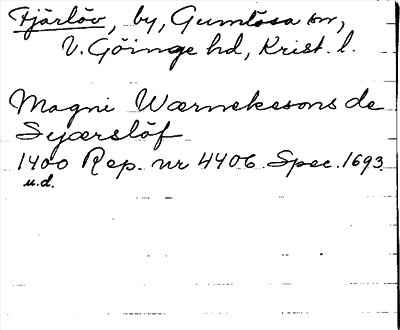 Fjärlöv, by, Gumlösa sn,
V. Göinge hd, Krist. l.
Magni Wærnekesons de
Syærslöf
1400 Rep. nr 4406 Spec. 1693
u.d.